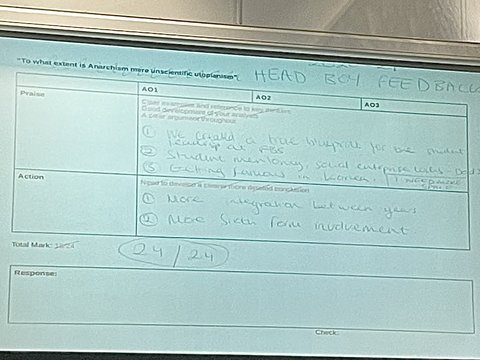 "To what extent is Anarchism mere unscientific utopianism".
HEAD BOY FEEDBACK
AO1
AO2
AO3
Praise
Clear examples and reference to key thinkers
Good development of your analysis
A clear argument throughout
① We created a true blueprint for the student
leadership at
② Student mentoring, social enterprise
③ Getting
Action
Need to develop a clearer more detailed conclusion
① More integration between years
② More Sixth form involvement
Total Mark: 18/24
24/24
Response:
Check: